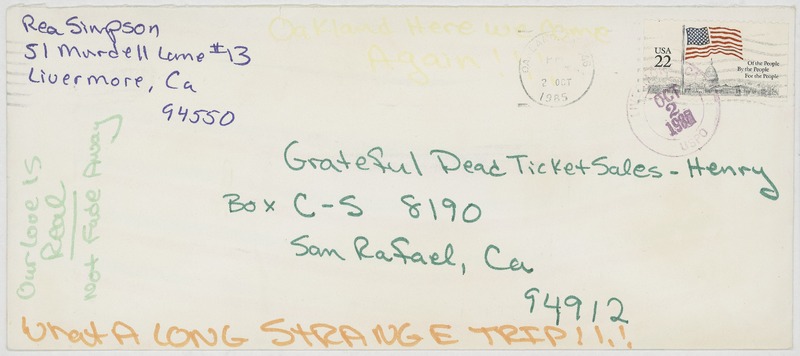 Rea Simpson
51 Murdell Lane #13
Livermore, Ca
94550
Oakland Here we come
Again !
2 OCT
1985
USA
22
Of the People
By the People
For the People
OCT
2
USPO
Grateful Dead Ticket Sales - Henry
Box C-S 8190
San Rafael, Ca
94912
Our Love Is
Real
Not Fade Away
What A LONG STRANGE TRIP!!!!